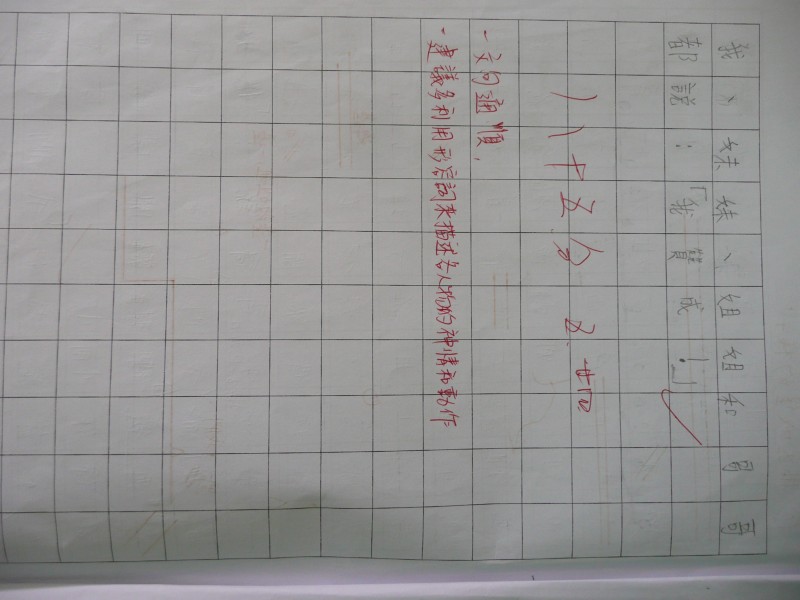 我、妹妹、姐姐和哥哥
都說：「我贊成！」
八十五分 五、廿四
·文句通順，
·建議多利用形容詞來描述各人物的神情和動作